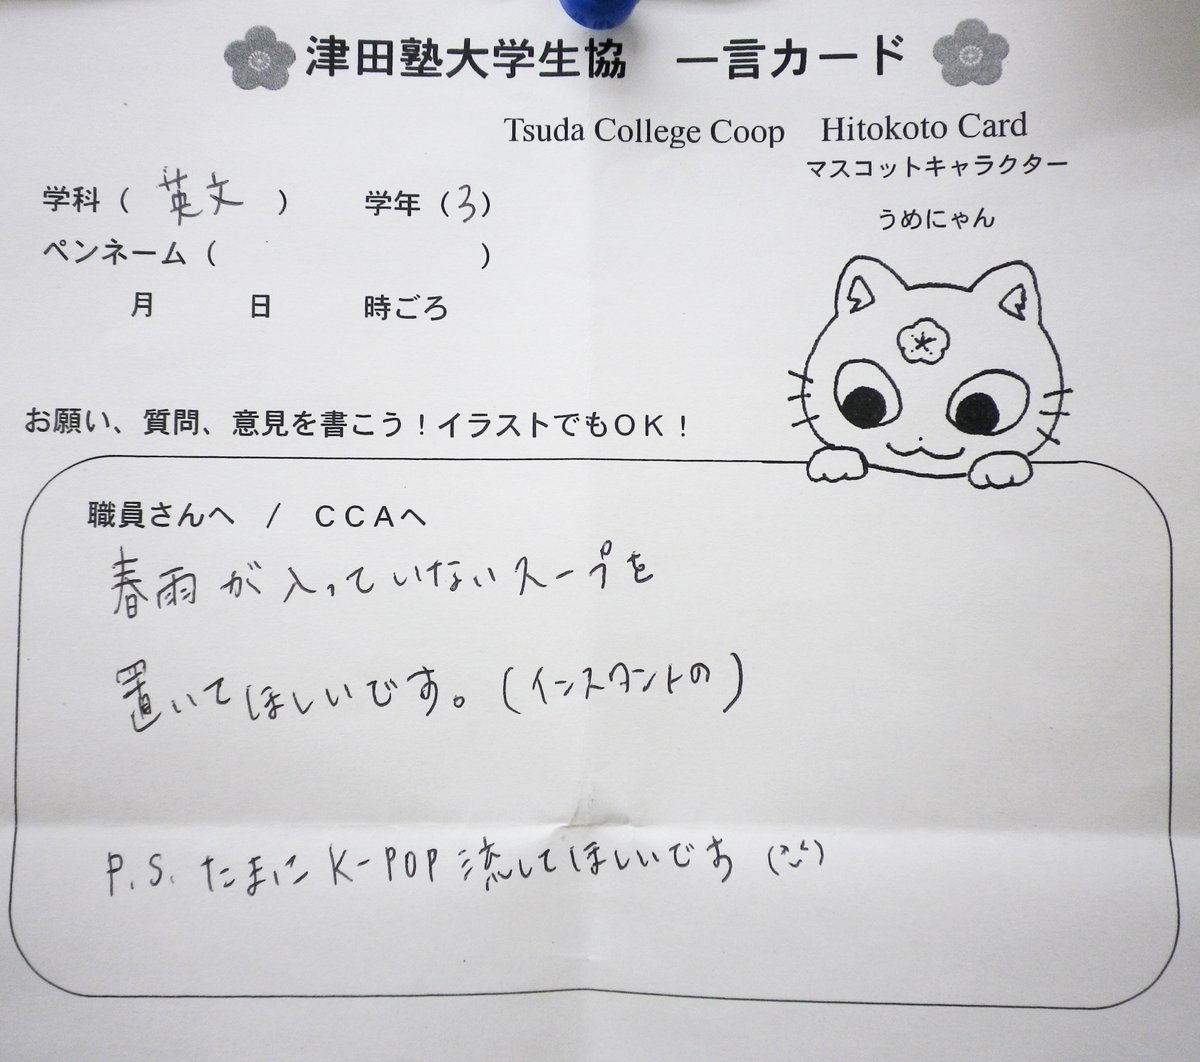 津田塾大学生協　一言カード
Tsuda College Coop　Hitokoto Card
マスコットキャラクター
うめにゃん
学科（ 英文 ）　学年（3）
ペンネーム（　　　　）
月　日　時ごろ
お願い、質問、意見を書こう！イラストでもＯＫ！
職員さんへ　/　ＣＣＡへ
春雨が入っていないスープを
置いてほしいです。(インスタントの)
P.S. たまにK-POP流してほしいです